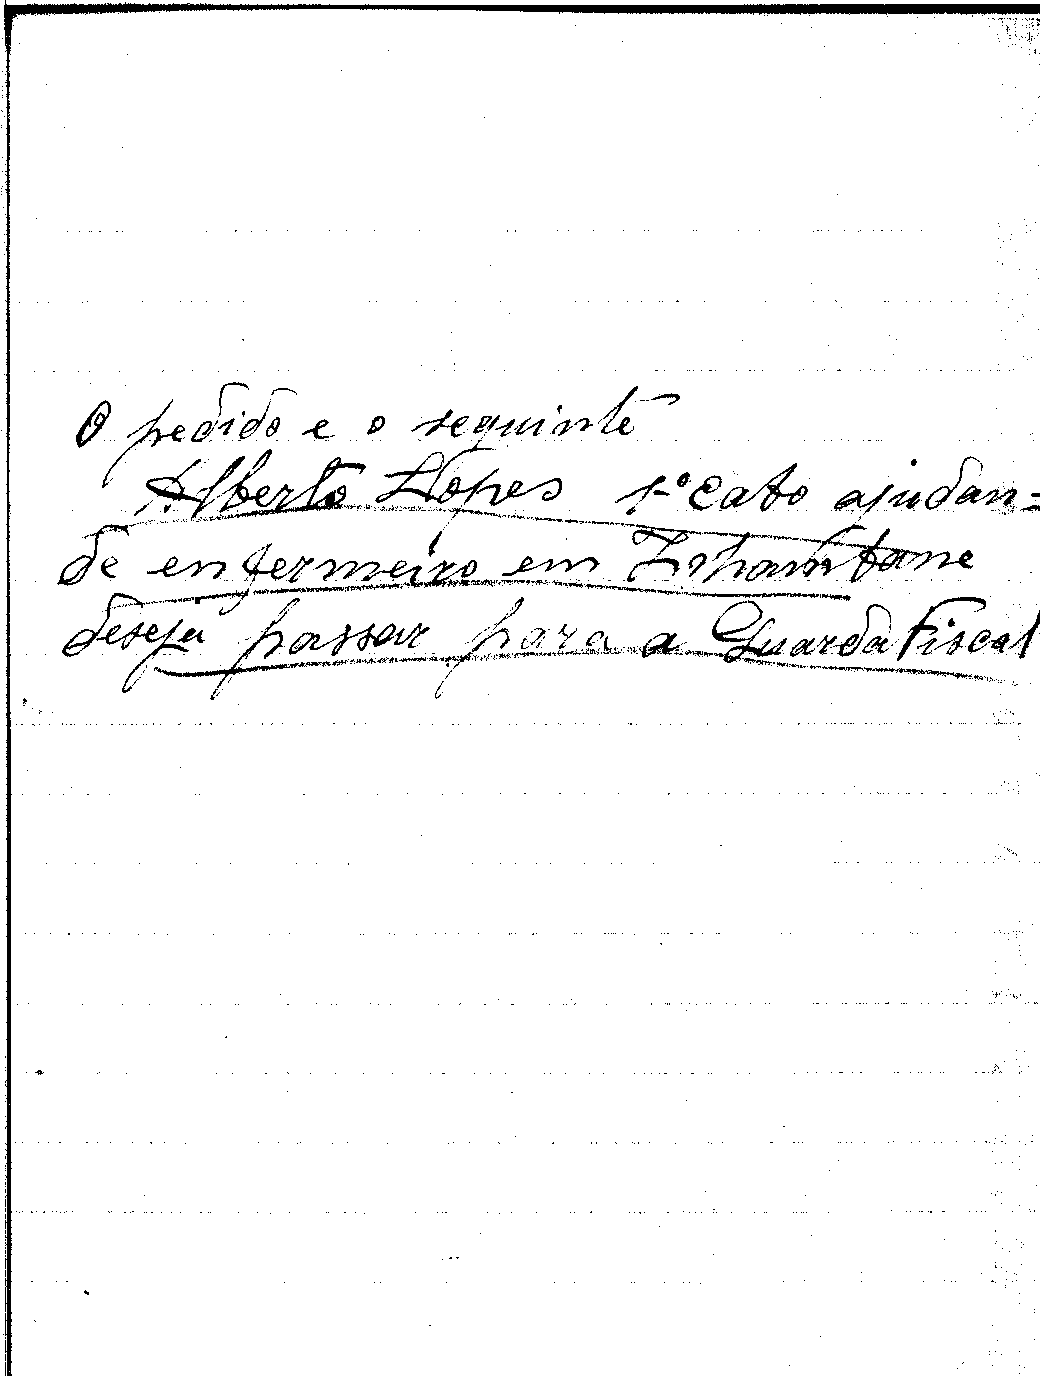 O pedido e o seguinte
Alberto Lopes 1.º Cabo ajudan=
de enfermeiro em
deseja passar para a Guarda Fiscal